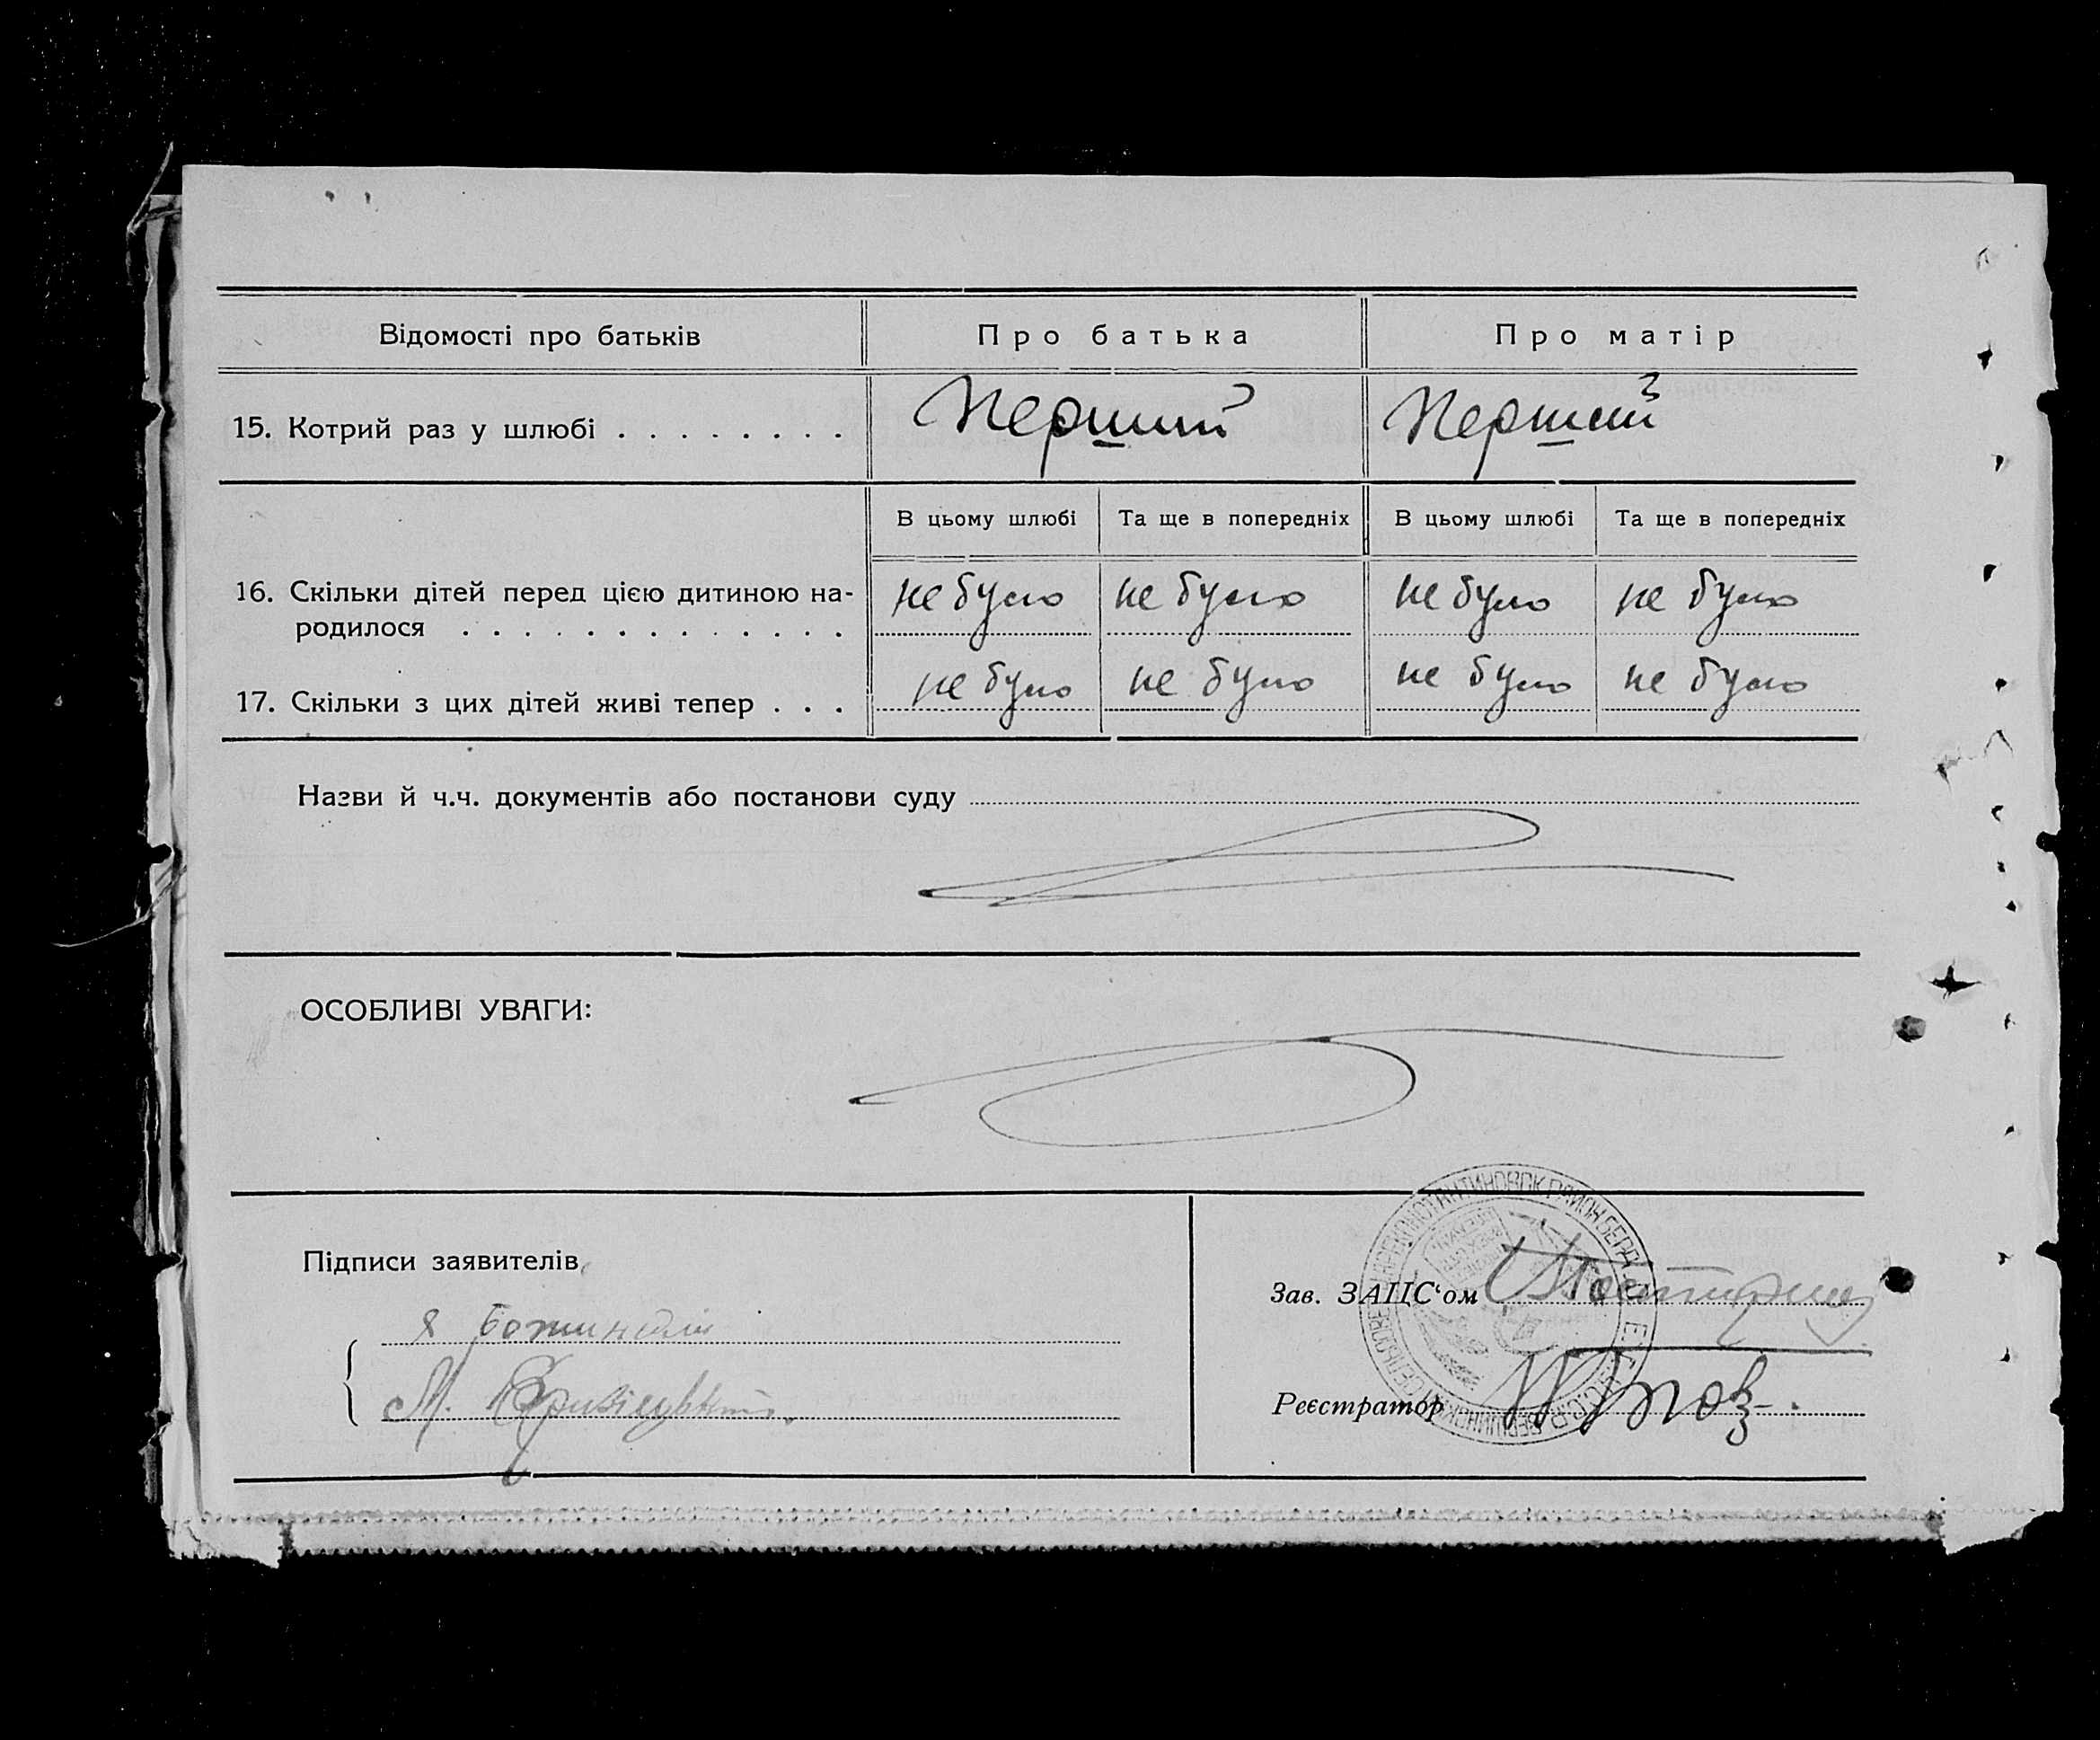 Відомості про батьків Про батька Про матір
15. Котрий раз у шлюбі . . . . . . . . Перший Перший
В цьому шлюбі Та ще в попередніх В цьому шлюбі Та ще в попередніх
16. Скільки дітей перед цією дитиною на- не було не було не було не було
родилося . . . . . . . . . . . . .
17. Скільки з цих дітей живі тепер . . . не було не було не було не було
Назви й ч.ч. документів або постанови суду
ОСОБЛИВІ УВАГИ:
Підписи заявителів
Зав. ЗАЦС‘ом
М.
Реєстратор